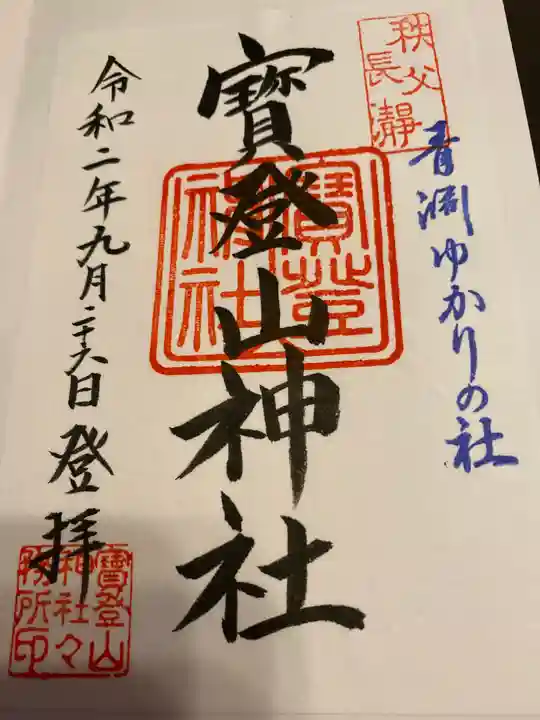 秩父
長瀞
青淵ゆかりの社
寳登山神社
寳登
神社
令和二年九月二十六日登拝
寳登山
神社々
務所印